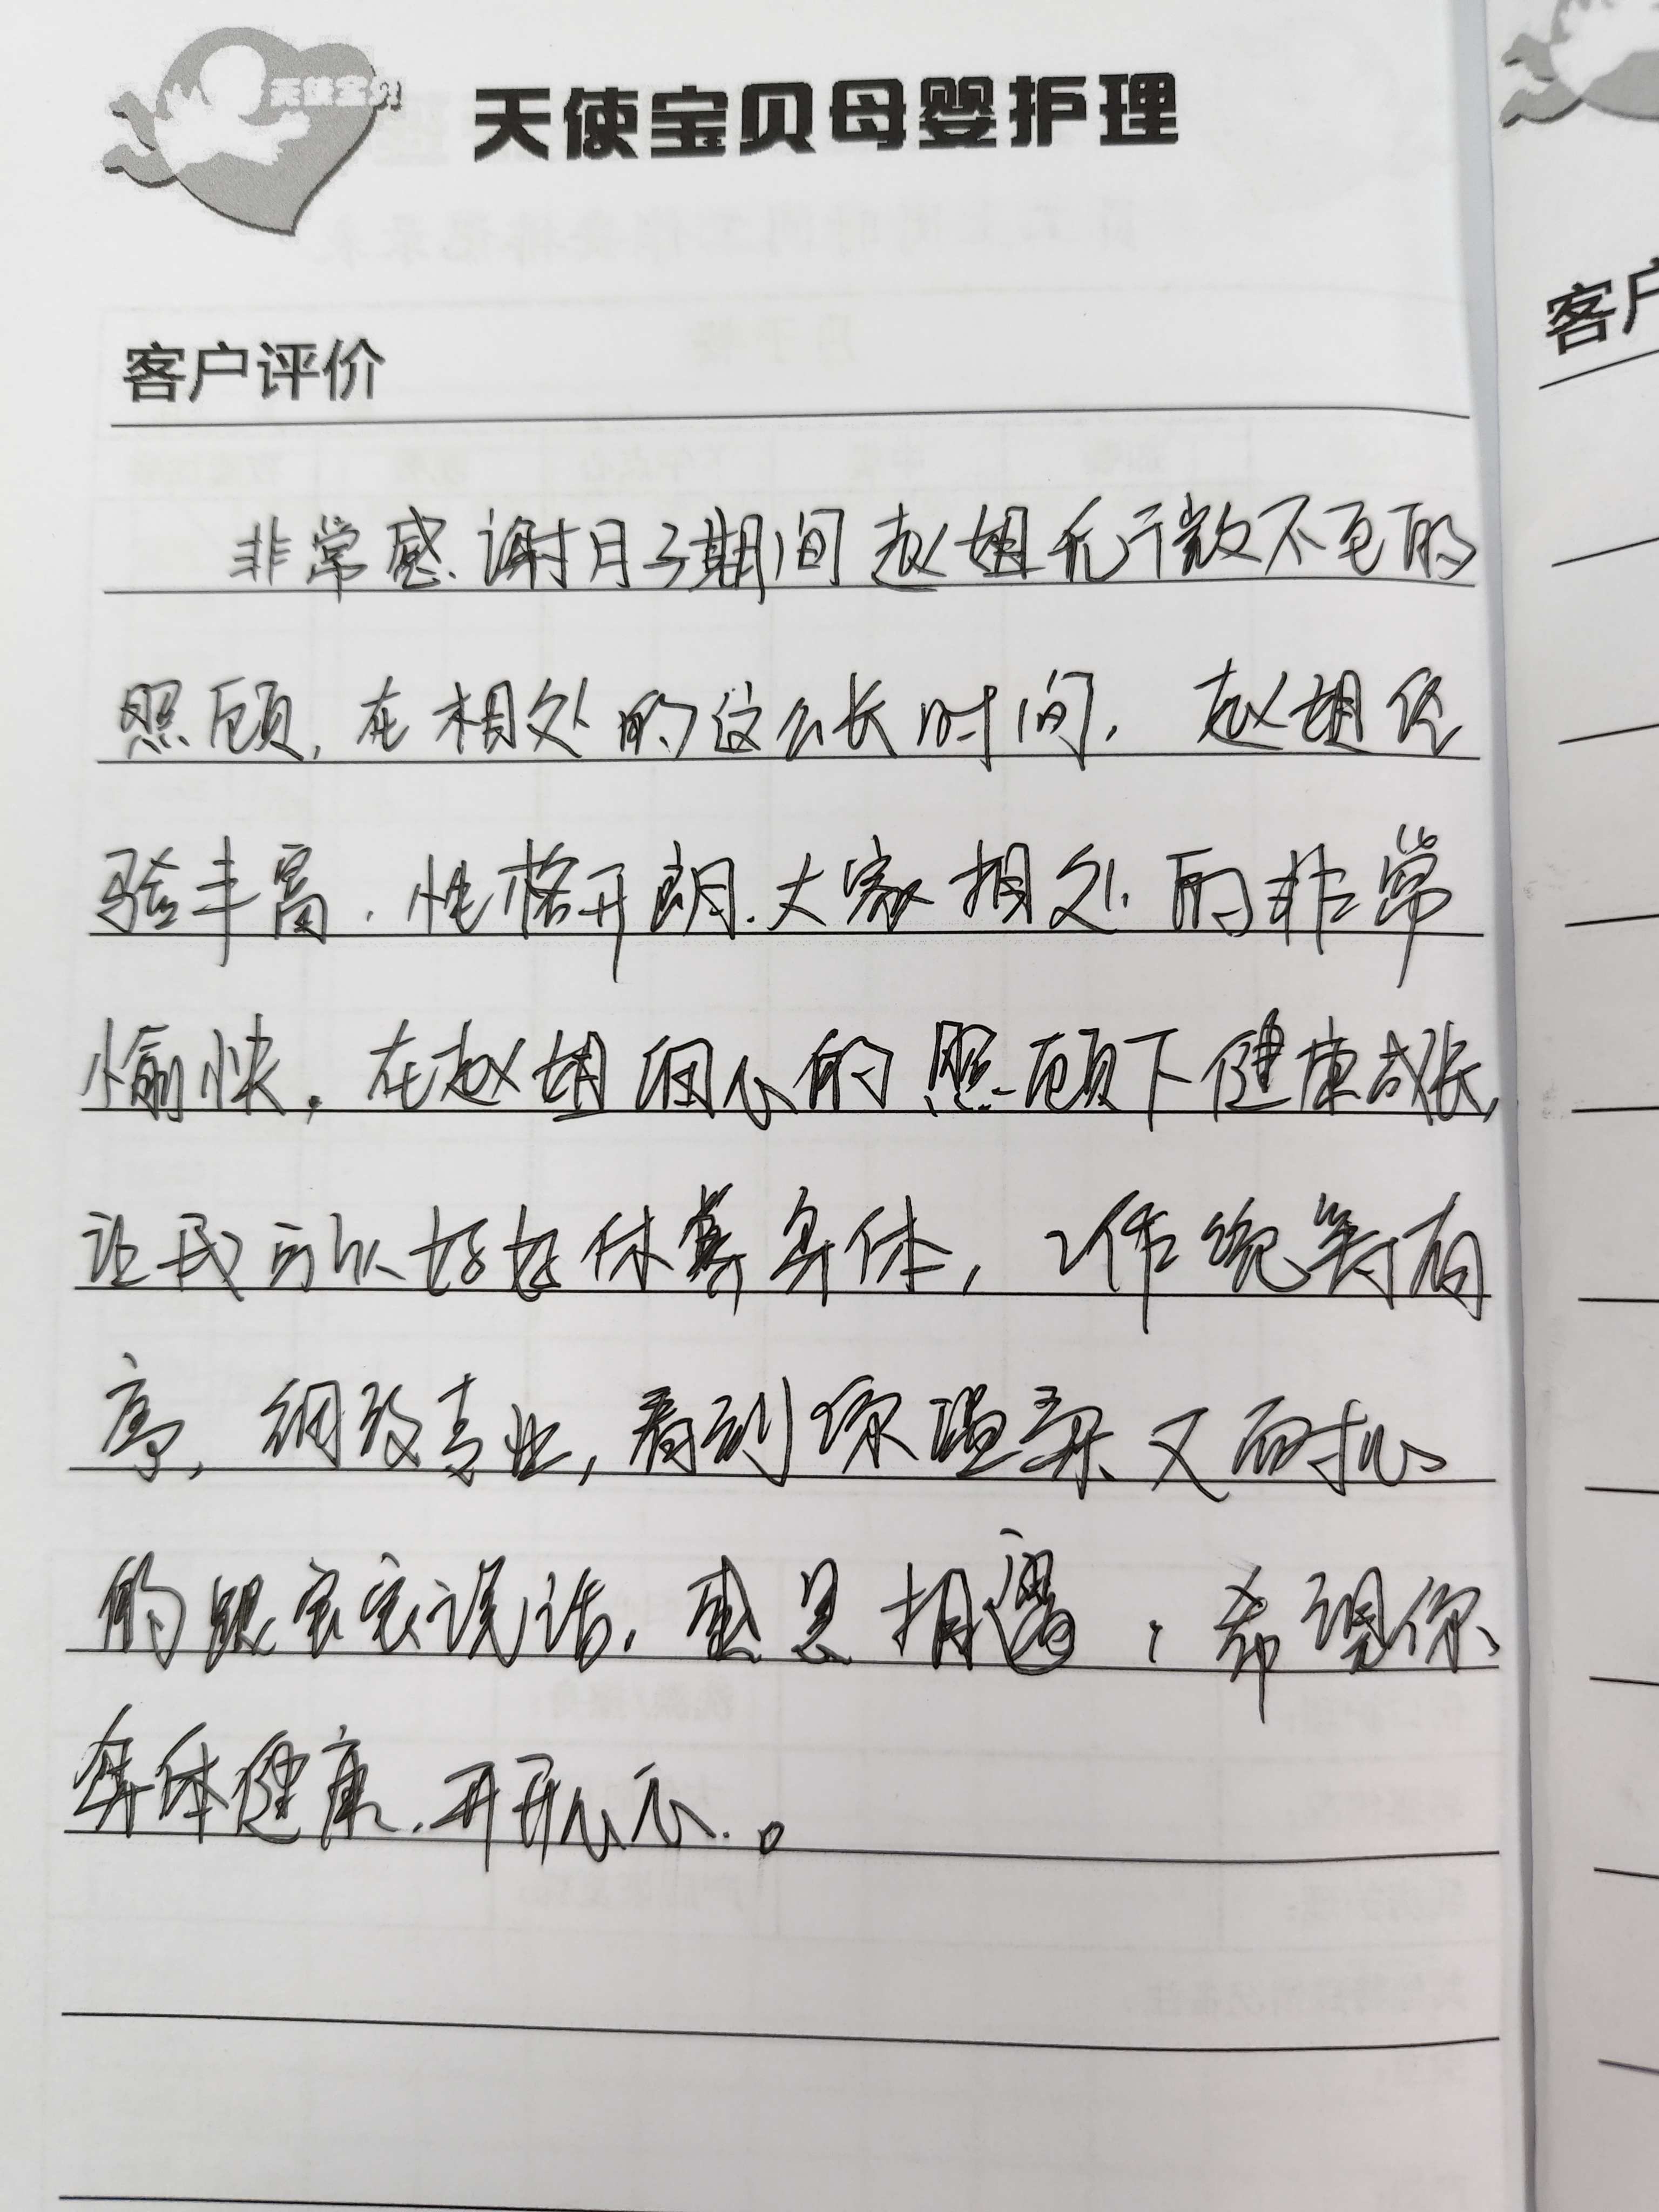 天使宝贝
天使宝贝母婴护理
客户
客户评价
非常感谢月子期间赵姐无微不至的
照顾,在相处的这么长时间,赵姐经
验丰富,性格开朗,大家相处的非常
愉快。在赵姐细心的照顾下健康成长,
让我可以好好休养身体,工作效率高
细致专业,看到你温柔又耐心
的跟宝宝说话,感恩相遇,希望你
身体健康,开开心心。